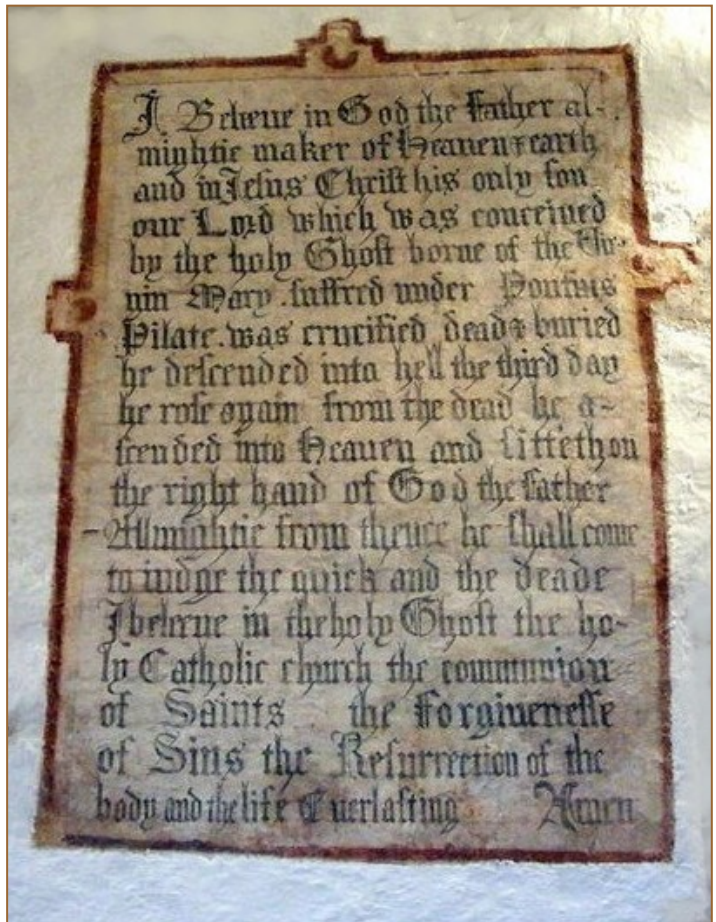 I Beleeue in God the Father al-
mightie maker of Heauen & earth
and in Iesus Christ his only son
our Lord which was conceiued
by the holy Ghost borne of the Vir-
gin Mary . suffred vnder Pontius
Pilate . was crucified dead & buried
he descended into hell the third day
he rose again from the dead he a-
scended into Heauen and sitteth on
the right hand of God the Father
Allmightie from thence he shall come
to iudge the quick and the deade
I beleeue in the holy Ghost the ho-
ly Catholic church the communion
of Saints the Forgiuenesse
of Sins the Resurrection of the
body and the life Everlasting Amen